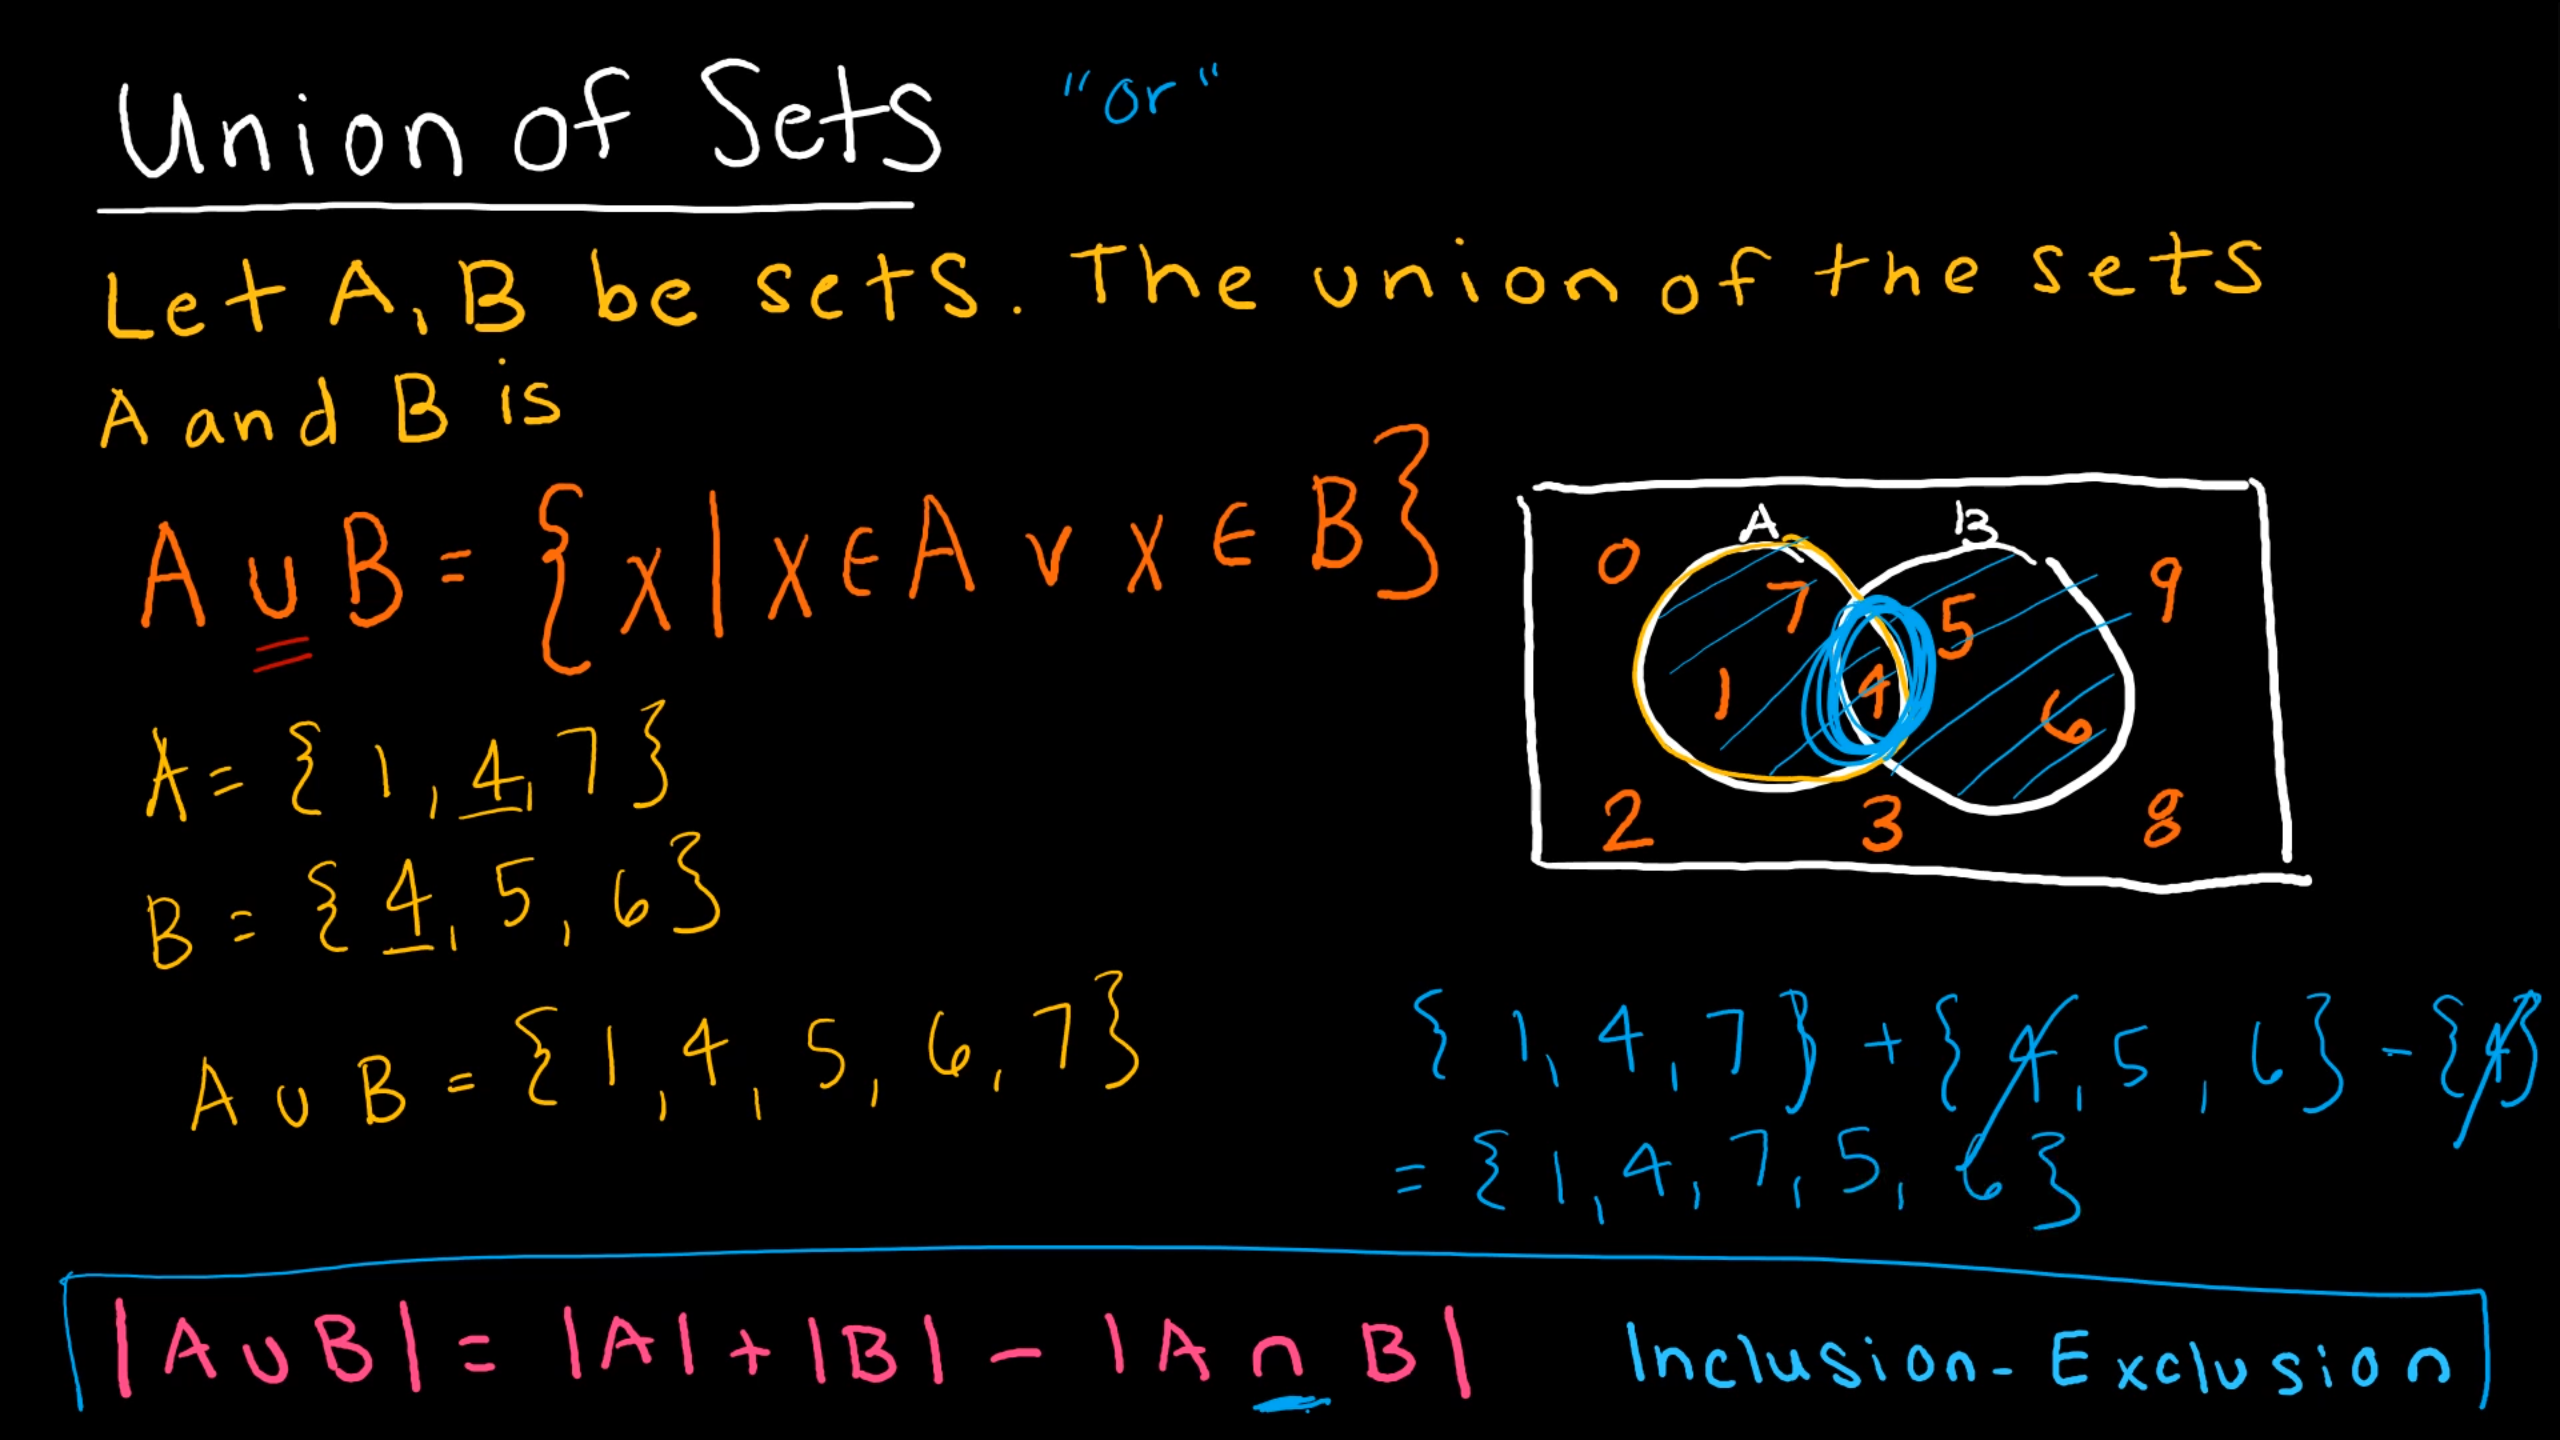 Union of Sets "or"
Let A, B be sets. The union of the sets
A and B is
A ∪ B = {x | x ∈ A ∨ x ∈ B}
A B
0 7 5 9
1 4 6
2 3 8
A = {1, 4, 7}
B = {4, 5, 6}
A ∪ B = {1, 4, 5, 6, 7}
{1, 4, 7} + {4, 5, 6} - {4}
= {1, 4, 7, 5, 6}
|A ∪ B| = |A| + |B| - |A ∩ B| Inclusion-Exclusion